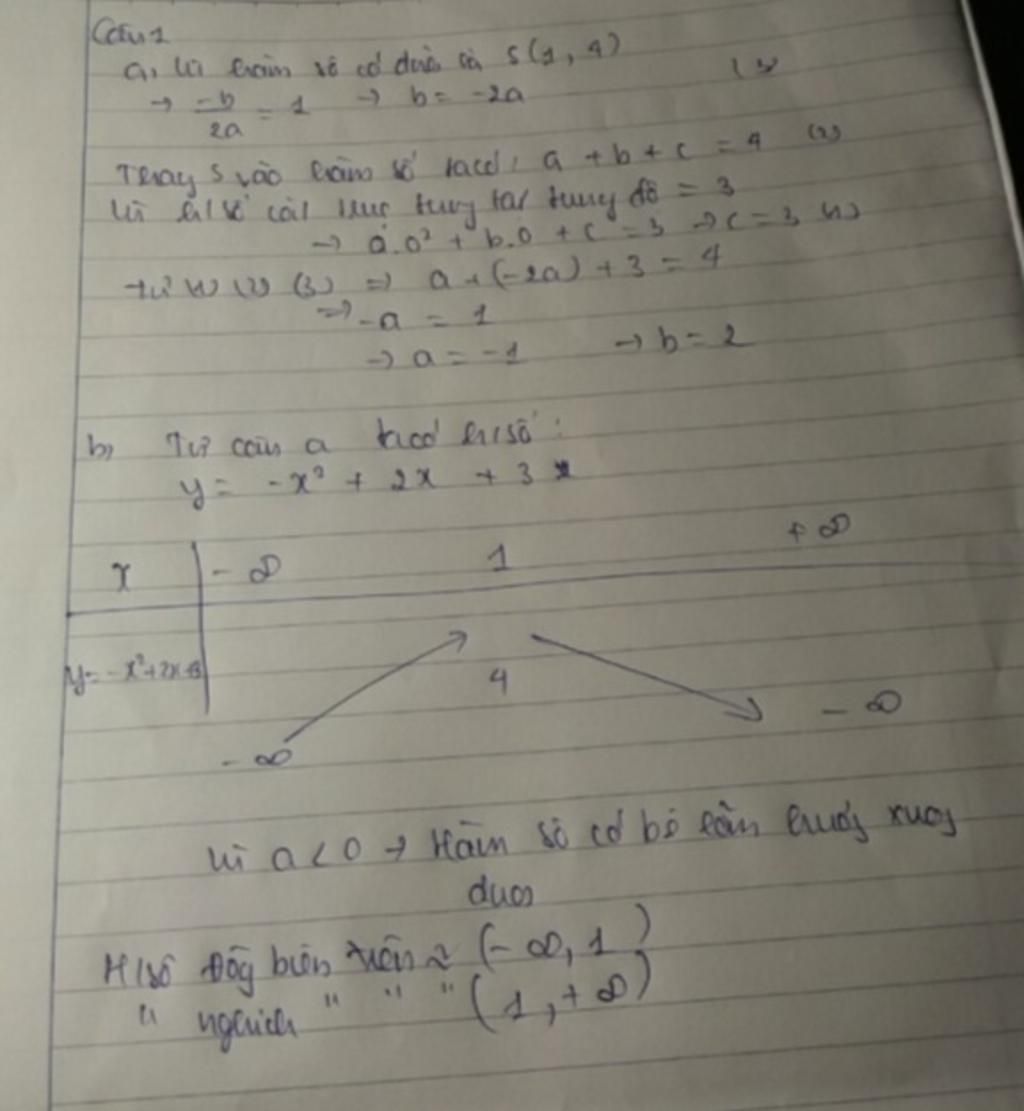 Câu 1
a, Vì hàm số có đỉnh là S(1, 4)
→ -b/2a = 1 → b = -2a (3)
Thay S vào hàm số ta có: a + b + c = 4 (2)
Vì h/số cắt trục tung tại tung độ = 3
→ a.0² + b.0 + c = 3 → c = 3 (1)
từ (1) (2) (3) ⇒ a + (-2a) + 3 = 4
⇒ -a = 1
→ a = -1 → b = 2
b, Từ câu a ta có h/số :
y = -x² + 2x + 3
x -∞ 1 +∞
y = -x²+2x+3
4
-∞ -∞
Vì a < 0 → Hàm số có bề lõm hướng xuống
dưới
H/số đồng biến trên (-∞, 1)
" nghịch " " " (1, +∞)